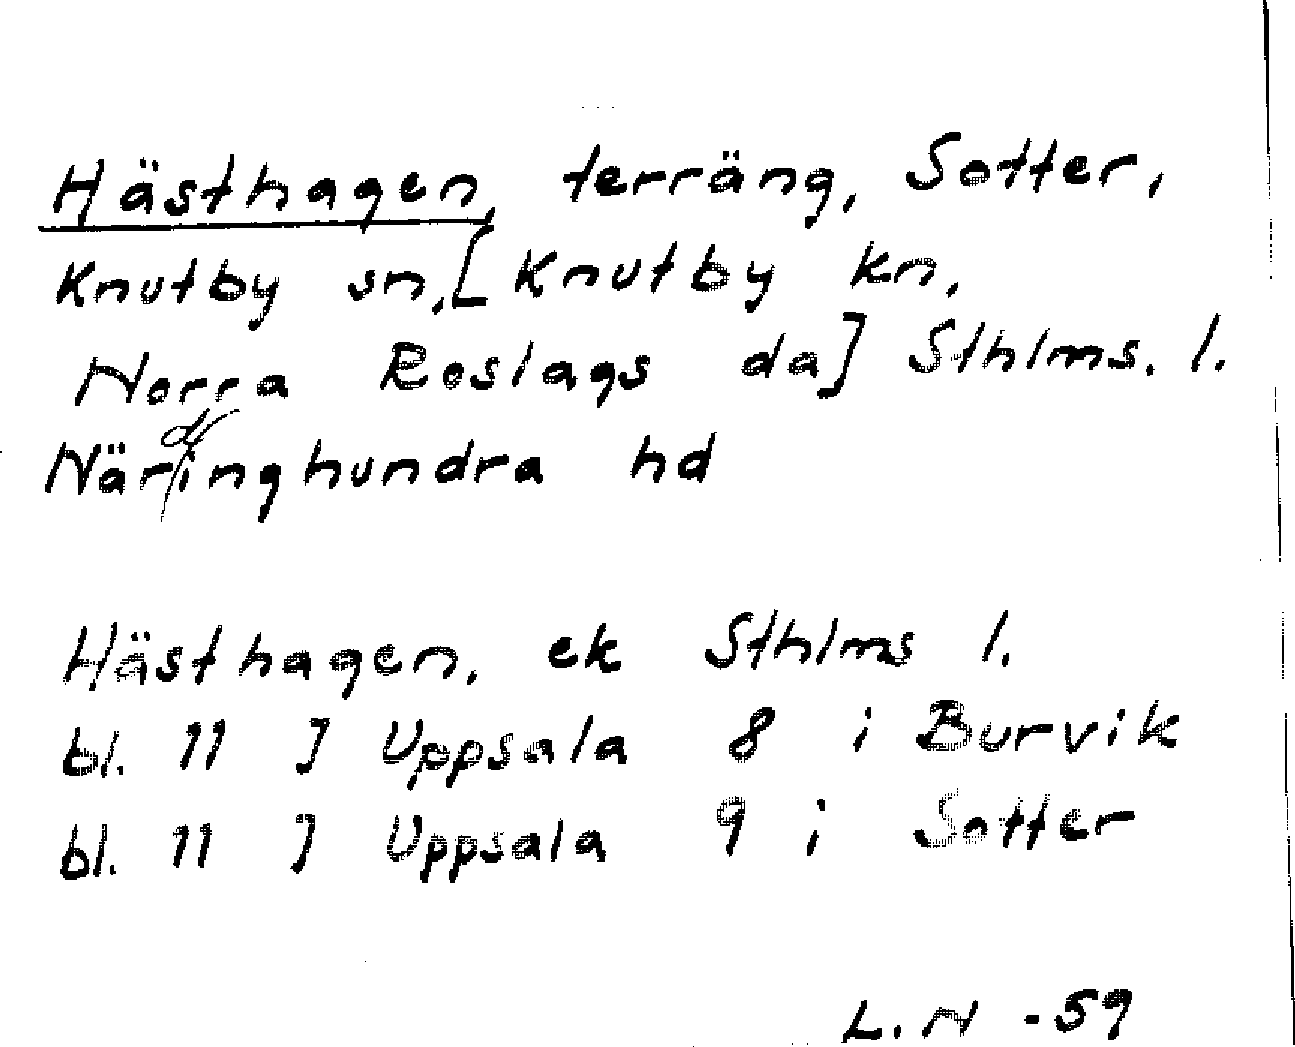 Hästhagen, terräng, Sotter,
Knutby sn, [Knutby kn,
Norra Roslags da] Sthlms. l.
Näringhundra hd
Hästhagen, ek Sthlms l.
bl. 11 J Uppsala 8 i Burvik
bl. 11 J Uppsala 9 i Sotter
L. N -59